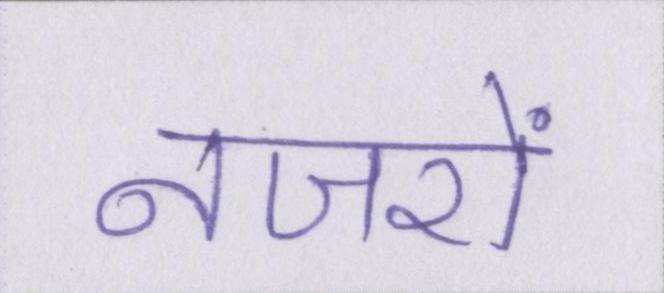 नजरों